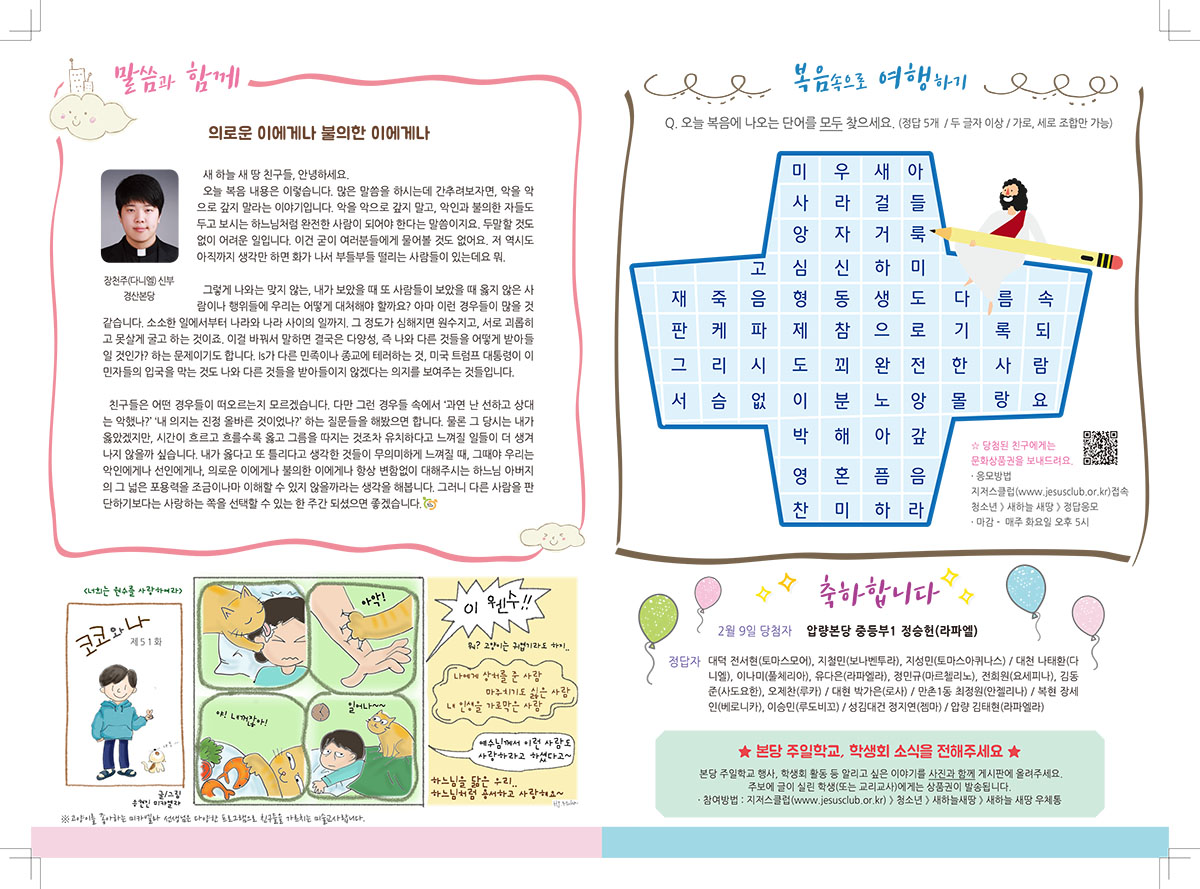 말씀과 함께
의로운 이에게나 불의한 이에게나
새 하늘 새 땅 친구들, 안녕하세요.
오늘 복음 내용은 이렇습니다. 많은 말씀을 하시는데 간추려보자면, 악을 악
으로 갚지 말라는 이야기입니다. 악을 악으로 갚지 말고, 악인과 불의한 자들도
두고 보시는 하느님처럼 완전한 사람이 되어야 한다는 말씀이지요. 두말할 것도
없이 어려운 일입니다. 이건 굳이 여러분들에게 물어볼 것도 없어요. 저 역시도
아직까지 생각만 하면 화가 나서 부들부들 떨리는 사람들이 있는데요 뭐.
장천주(다니엘) 신부
경산본당
그렇게 나와는 맞지 않는, 내가 보았을 때 또 사람들이 보았을 때 옳지 않은 사
람이나 행위들에 우리는 어떻게 대처해야 할까요? 아마 이런 경우들이 많을 것
같습니다. 소소한 일에서부터 나라와 나라 사이의 일까지. 그 정도가 심해지면 원수지고, 서로 괴롭히
고 못살게 굴고 하는 것이죠. 이걸 바꿔서 말하면 결국은 다양성, 즉 나와 다른 것들을 어떻게 받아들
일 것인가? 하는 문제이기도 합니다. Is가 다른 민족이나 종교에 테러하는 것, 미국 트럼프 대통령이 이
민자들의 입국을 막는 것도 나와 다른 것들을 받아들이지 않겠다는 의지를 보여주는 것들입니다.
친구들은 어떤 경우들이 떠오르는지 모르겠습니다. 다만 그런 경우들 속에서 '과연 난 선하고 상대
는 악했나?' '내 의지는 진정 올바른 것이었나?' 하는 질문들을 해봤으면 합니다. 물론 그 당시는 내가
옳았겠지만, 시간이 흐르고 흐를수록 옳고 그름을 따지는 것조차 유치하다고 느껴질 일들이 더 생겨
나지 않을까 싶습니다. 내가 옳다고 또 틀리다고 생각한 것들이 무의미하게 느껴질 때, 그때야 우리는
악인에게나 선인에게나, 의로운 이에게나 불의한 이에게나 항상 변함없이 대해주시는 하느님 아버지
의 그 넓은 포용력을 조금이나마 이해할 수 있지 않을까라는 생각을 해봅니다. 그러니 다른 사람을 판
단하기보다는 사랑하는 쪽을 선택할 수 있는 한 주간 되셨으면 좋겠습니다.
<너희는 원수를 사랑하여라>
코코와 나
제51화
글/그림
우현진 미카엘라
아악!
야! 내꺼잖아!
일어나~~
이 웬수!!
뭐? 고양이는 귀엽기라도 하지..
나에게 상처를 준 사람
마주치기도 싫은 사람
내 인생을 가로막은 사람
예수님께서 이런 사람도
사랑하라고 하셨다고~
하느님을 닮은 우리..
하느님처럼 용서하고 사랑해요~
※고양이를 좋아하는 미카엘라 선생님은 다양한 프로그램으로 친구들을 가르치는 미술교사랍니다.
복음속으로 여행하기
Q. 오늘 복음에 나오는 단어를 모두 찾으세요. (정답 5개 / 두 글자 이상 / 가로, 세로 조합만 가능)
미 우 새 아
사 라 걸 들
앙 자 거 룩
고 심 신 하 미
재 죽 음 형 동 생 도 다 름 속
판 케 파 제 참 으 로 기 록 되
그 리 시 도 꾀 완 전 한 사 람
서 슴 없 이 분 노 앙 몰 랑 요
박 해 아 갚
영 혼 픔 음
찬 미 하 라
☆ 당첨된 친구에게는
문화상품권을 보내드려요.
· 응모방법
지저스클럽(www.jesusclub.or.kr)접속
청소년 > 새하늘 새땅 > 정답응모
· 마감 - 매주 화요일 오후 5시
축하합니다
2월 9일 당첨자 압량본당 중등부1 정승헌(라파엘)
정답자 대덕 전서현(토마스모어), 지철민(보나벤투라), 지성민(토마스아퀴나스) / 대천 나태환(다
니엘), 이나미(풀체리아), 유다은(라파엘라), 정민규(마르첼리노), 전회원(요세피나), 김동
준(사도요한), 오제찬(루카) / 대현 박가은(로사) / 만촌1동 최정원(안젤리나) / 복현 장세
인(베로니카), 이승민(루도비꼬) / 성김대건 정지연(젬마) / 압량 김태현(라파엘라)
★ 본당 주일학교, 학생회 소식을 전해주세요 ★
본당 주일학교 행사, 학생회 활동 등 알리고 싶은 이야기를 사진과 함께 게시판에 올려주세요.
주보에 글이 실린 학생(또는 교리교사)에게는 상품권이 발송됩니다.
· 참여방법 : 지저스클럽(www.jesusclub.or.kr) > 청소년 > 새하늘새땅 > 새하늘 새땅 우체통